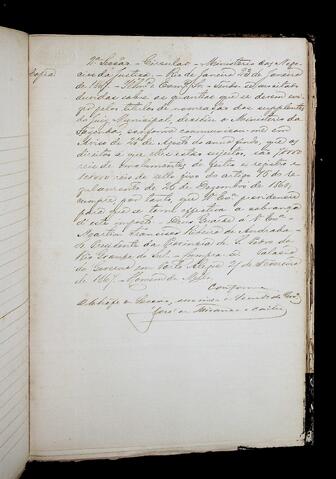 Copia
2ª Secção - Circular - Ministerio dos Nego-
cios da Justiça - Rio de Janeiro 23 de Janeiro
de 1867 - Illmo e Exmo Sr. - Tendo-se suscitado
duvidas sobre as quantias que se devem co-
pelos titulos de nomeação dos supplentes
de Juiz Municipal, o Ministerio da
Fazenda, conforme communicou-me em
Aviso de 20 de Agosto do anno findo, que os
direitos a que elles estão sujeitos, são
reis de emolumentos de feitio e registro e
reis de sello fixo do artigo 15 do re-
gulamento de 26 de Dezembro de 1860,
cumpre por tanto, que V. Exª providencie
para que se torne effectiva a cobrança
d'este imposto - Deus Guarde a V. Exª -
Martim Francisco Ribeiro de Andrada -
Sr. Presidente da Provincia de S. Pedro do
Rio Grande do Sul - Cumpra-se - Palacio
do Governo em Porto Alegre 21 de Fevereiro
de 1867 - Homem de Mello
Conforme